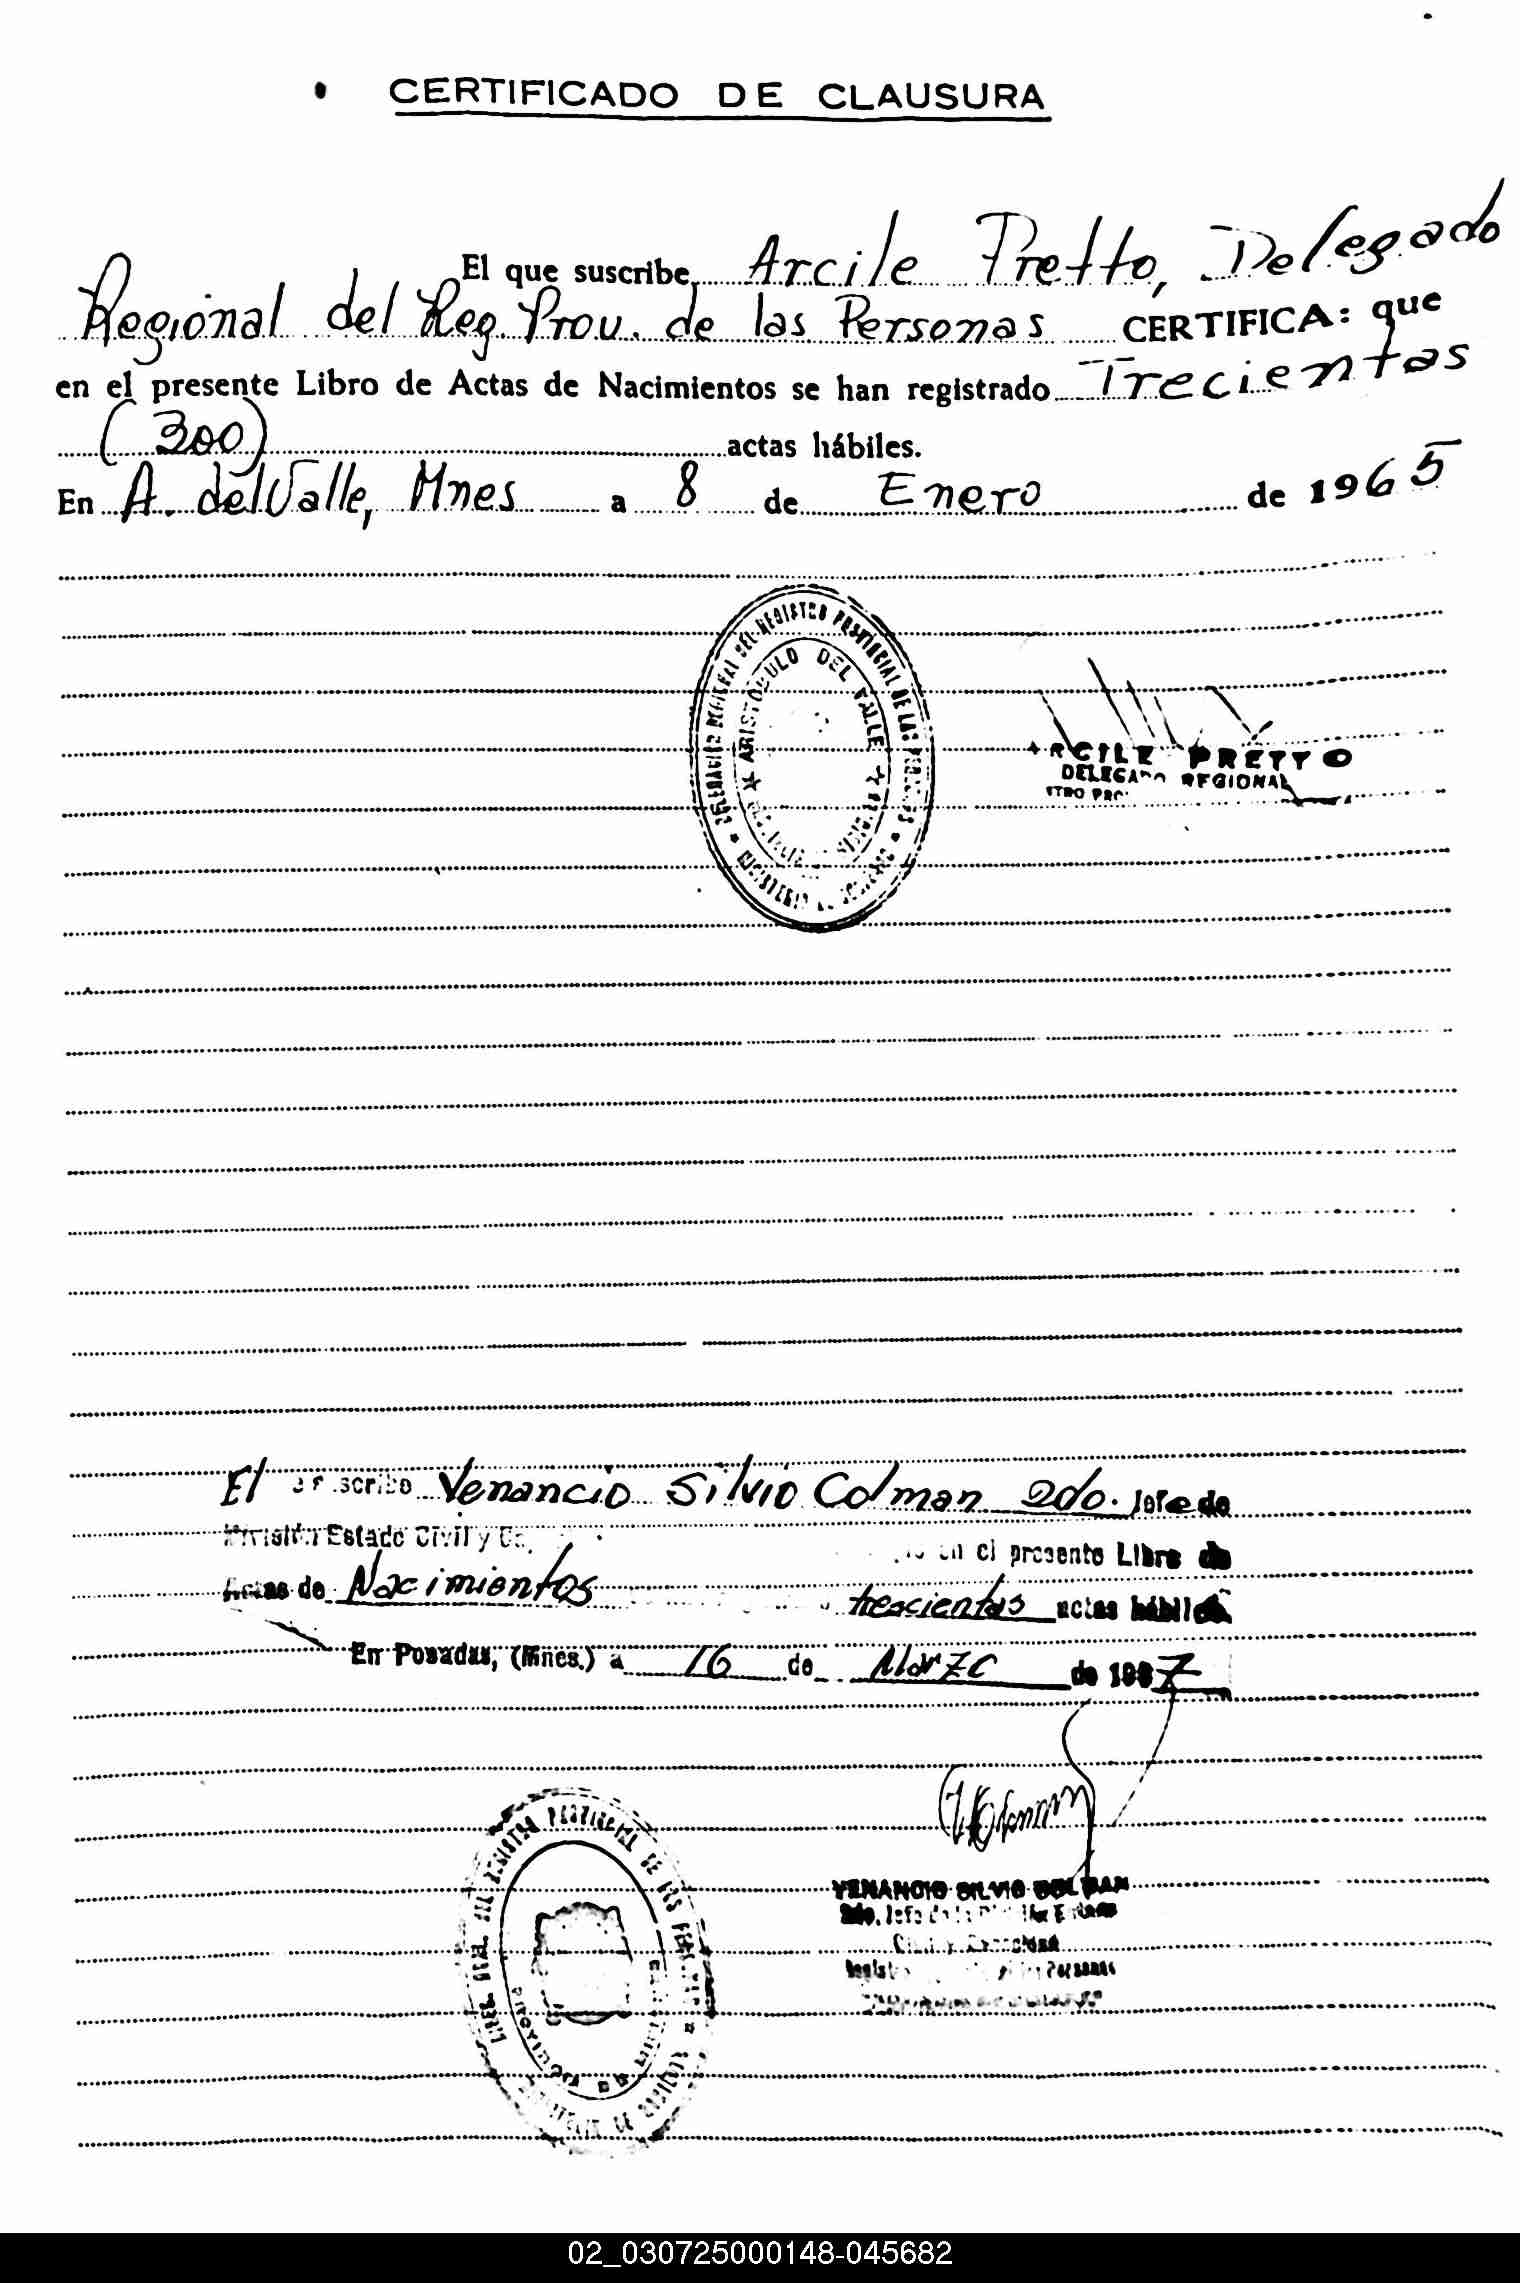 CERTIFICADO DE CLAUSURA
El que suscribe Arcile Pretto, Delegado
Regional del Reg. Prov. de las Personas CERTIFICA: que
en el presente Libro de Actas de Nacimientos se han registrado Trecientas
(300) actas hábiles.
En A. del Valle, Mnes a 8 de Enero de 1965
DELEGACION REGIONAL DEL REGISTRO PROVINCIAL DE LAS PERSONAS
ARISTOBULO DEL VALLE
ARCILE PRETTO
DELEGADO REGIONAL
El Venancio Silvio Colman 2do. Jefe de
División Estado Civil y
en el presente Libro de
Actas de Nacimientos trescientas actas hábiles
En Posadas, (Mnes.) a 16 de Marzo de 1967
REGISTRO PROVINCIAL DE LAS PERSONAS
VENANCIO SILVIO COLMAN
2do. Jefe de la División Estado
Civil y
Personas
02_030725000148-045682